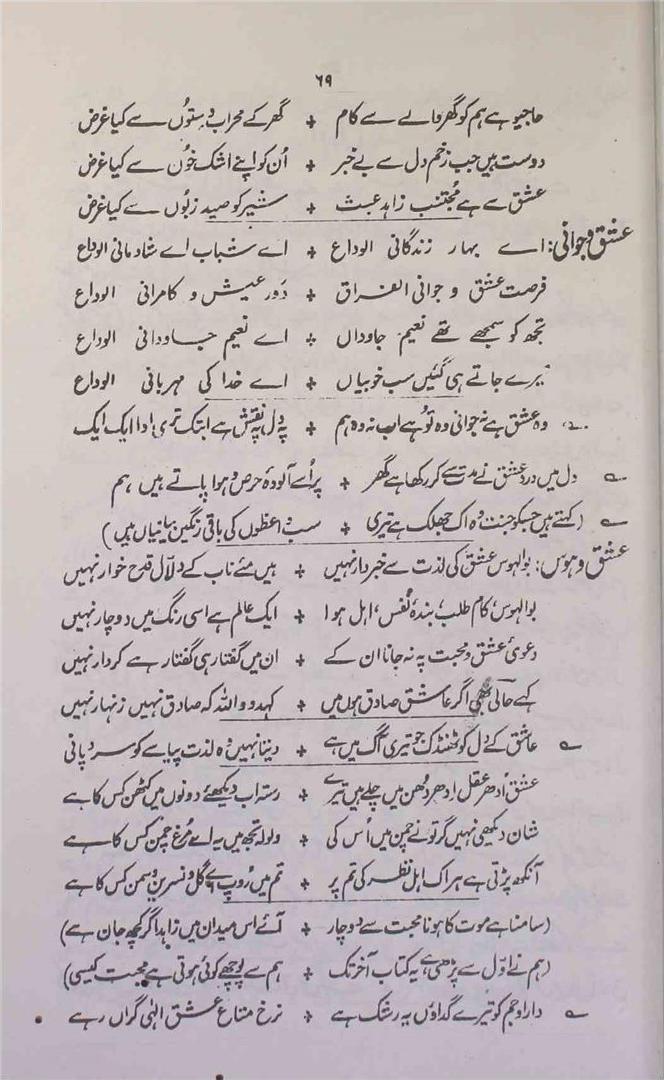 ۶۹
حاجیو ہے ہم کو گھر والے سے کام + گھر کے محراب و ستوُں سے کیا غرض
دوست ہیں جب زخم دل سے بے خبر + اُن کو اپنے اشک خوُں سے کیا غرض
عشق سے ہے مُجتنب زاہد عبث + شیر کو صید زبُوں سے کیا غرض
عشق و جوانی: اے بہار زندگانی الوداع + اے شباب اے شادمانی الوداع
فرصت عشق و جوانی الفراق + دَور عیش و کامرانی الوداع
تجھ کو سمجھے تھے نعیم جاوداں + اے نعیم جاودانی الوداع
تیرے جاتے ہی گئیں سب خوبیاں + اے خدا کی مہربانی الوداع
وہ عشق ہے نہ جوانی وہ توُ ہے اب نہ وہ ہم + پہ دل پہ نقش ہے ابتک تری ادا ایک ایک
دل میں درد عشق نے مدت سے کر رکھا ہے گھر + پر اُسے آلودۂ حرص و ہوا پاتے ہیں ہم
(کہتے ہیں جسکو جنت وہ اک جھلک ہے تیری + سب واعظوں کی باقی رنگین بیانیاں ہیں)
عشق و ہوس: بوالہوس عشق کی لذت سے خبردار نہیں + ہیں مئے ناب کے دلّال قدح خوار نہیں
بوالہوس، کام طلب، بندۂ نفس، اہل ہوا + ایک عالم ہے اسی رنگ میں دوچار نہیں
دعویٔ عشق و محبت پہ نہ جانا ان کے + ان میں گفتار ہی گفتار ہے کردار نہیں
کہے حالی بھی اگر عاشق صادق ہوں میں + کہدو واللہ کہ صادق نہیں زنہار نہیں
عاشق کے دل کو ٹھنڈک جو تیری آگ میں ہے + دیتا نہیں وہ لذت پیاسے کو سرد پانی
عشق اُدھر عقل ادھر دُھن میں چلے ہیں تیرے + رستہ اب دیکھئے دونوں میں کٹھن کس کا ہے
شان دیکھی نہیں گر تو نے چمن میں اُس کی + ولولہ تجھ میں یہ اے مُرغ چمن کس کا ہے
آنکھ پڑتی ہے ہر اک اہل نظر کی تم پر + تم میں رُوپ اے گل و نسرین و سمن کس کا ہے
(سامنا ہے موت کا ہونا محبت سے دوچار + آئے اس میدان میں زاہد اگر کچھ جان ہے)
(ہم نے اوّل سے پڑھی ہے یہ کتاب آخر تک + ہم سے پوچھے کوئی ہوتی ہے محبت کیسی)
دارا و جم کو تیرے گداؤں پہ رشک ہے + نرخ متاع عشق الٰہی گراں رہے